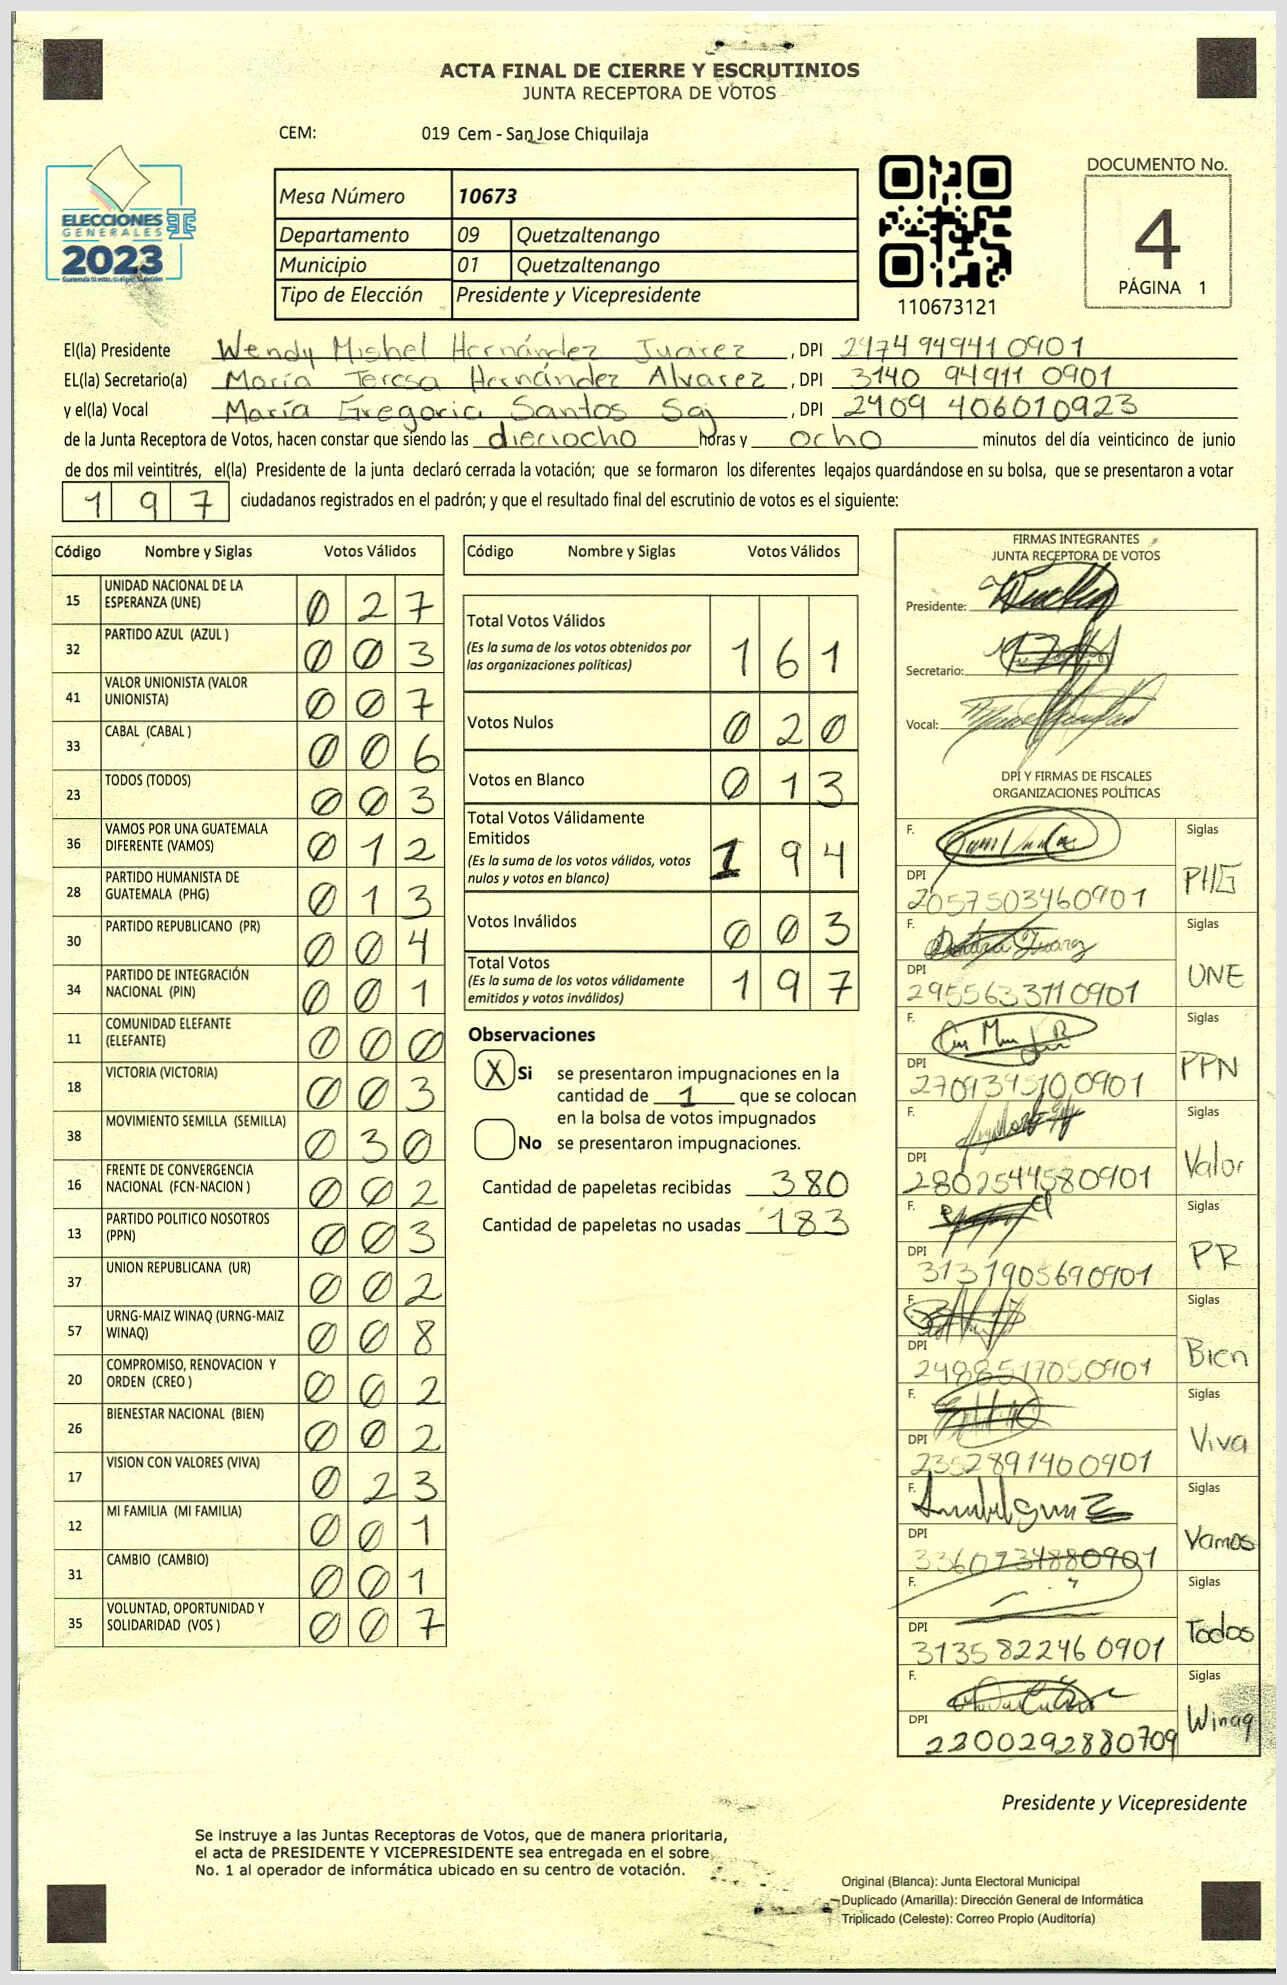 ACTA FINAL DE CIERRE Y ESCRUTINIOS
JUNTA RECEPTORA DE VOTOS
CEM: 019 Cem - San Jose Chiquilaja
ELECCIONES
GENERALES
2023
Mesa Número 10673
Departamento 09 Quetzaltenango
Municipio 01 Quetzaltenango
Tipo de Elección Presidente y Vicepresidente
110673121
DOCUMENTO No.
4
PÁGINA 1
El(la) Presidente Wendy Mishel Hernández Juarez , DPI 2474 94941 0901
EL(la) Secretario(a) María Teresa Hernández Alvarez , DPI 3140 94911 0901
y el(la) Vocal María Gregoria Santos Saj , DPI 2409 40601 0923
de la Junta Receptora de Votos, hacen constar que siendo las dieciocho horas y ocho minutos del día veinticinco de junio
de dos mil veintitrés, el(la) Presidente de la junta declaró cerrada la votación; que se formaron los diferentes legajos quardándose en su bolsa, que se presentaron a votar
197 ciudadanos registrados en el padrón; y que el resultado final del escrutinio de votos es el siguiente:
Código Nombre y Siglas Votos Válidos
15 UNIDAD NACIONAL DE LA ESPERANZA (UNE) 027
32 PARTIDO AZUL (AZUL ) 003
41 VALOR UNIONISTA (VALOR UNIONISTA) 007
33 CABAL (CABAL ) 006
23 TODOS (TODOS) 003
36 VAMOS POR UNA GUATEMALA DIFERENTE (VAMOS) 012
28 PARTIDO HUMANISTA DE GUATEMALA (PHG) 013
30 PARTIDO REPUBLICANO (PR) 004
34 PARTIDO DE INTEGRACIÓN NACIONAL (PIN) 001
11 COMUNIDAD ELEFANTE (ELEFANTE) 000
18 VICTORIA (VICTORIA) 003
38 MOVIMIENTO SEMILLA (SEMILLA) 030
16 FRENTE DE CONVERGENCIA NACIONAL (FCN-NACION ) 002
13 PARTIDO POLITICO NOSOTROS (PPN) 003
37 UNION REPUBLICANA (UR) 002
57 URNG-MAIZ WINAQ (URNG-MAIZ WINAQ) 008
20 COMPROMISO, RENOVACION Y ORDEN (CREO ) 002
26 BIENESTAR NACIONAL (BIEN) 002
17 VISION CON VALORES (VIVA) 023
12 MI FAMILIA (MI FAMILIA) 001
31 CAMBIO (CAMBIO) 001
35 VOLUNTAD, OPORTUNIDAD Y SOLIDARIDAD (VOS ) 007
Código Nombre y Siglas Votos Válidos
Total Votos Válidos 161
(Es la suma de los votos obtenidos por
las organizaciones políticas)
Votos Nulos 020
Votos en Blanco 013
Total Votos Válidamente
Emitidos 194
(Es la suma de los votos válidos, votos
nulos y votos en blanco)
Votos Inválidos 003
Total Votos 197
(Es la suma de los votos válidamente
emitidos y votos inválidos)
Observaciones
X Si se presentaron impugnaciones en la
cantidad de 1 que se colocan
en la bolsa de votos impugnados
No se presentaron impugnaciones.
Cantidad de papeletas recibidas 380
Cantidad de papeletas no usadas 183
FIRMAS INTEGRANTES
JUNTA RECEPTORA DE VOTOS
Presidente:
Secretario:
Vocal:
DPI Y FIRMAS DE FISCALES
ORGANIZACIONES POLÍTICAS
F. Siglas
DPI 2057503460901 PHG
F. Siglas
DPI 2955633110901 UNE
F. Siglas
DPI 2709395100901 PPN
F. Siglas
DPI 2802544580901 Valor
F. Siglas
DPI 3131905690901 PR
F. Siglas
DPI 2498517050901 Bien
F. Siglas
DPI 2352891400901 Viva
F. Siglas
DPI 3360734880901 Vamos
F. Siglas
DPI 3135822460901 Todos
F. Siglas
DPI 2200292880709 Winaq
Presidente y Vicepresidente
Se instruye a las Juntas Receptoras de Votos, que de manera prioritaria,
el acta de PRESIDENTE Y VICEPRESIDENTE sea entregada en el sobre
No. 1 al operador de informática ubicado en su centro de votación.
Original (Blanca): Junta Electoral Municipal
Duplicado (Amarilla): Dirección General de Informática
Triplicado (Celeste): Correo Propio (Auditoría)